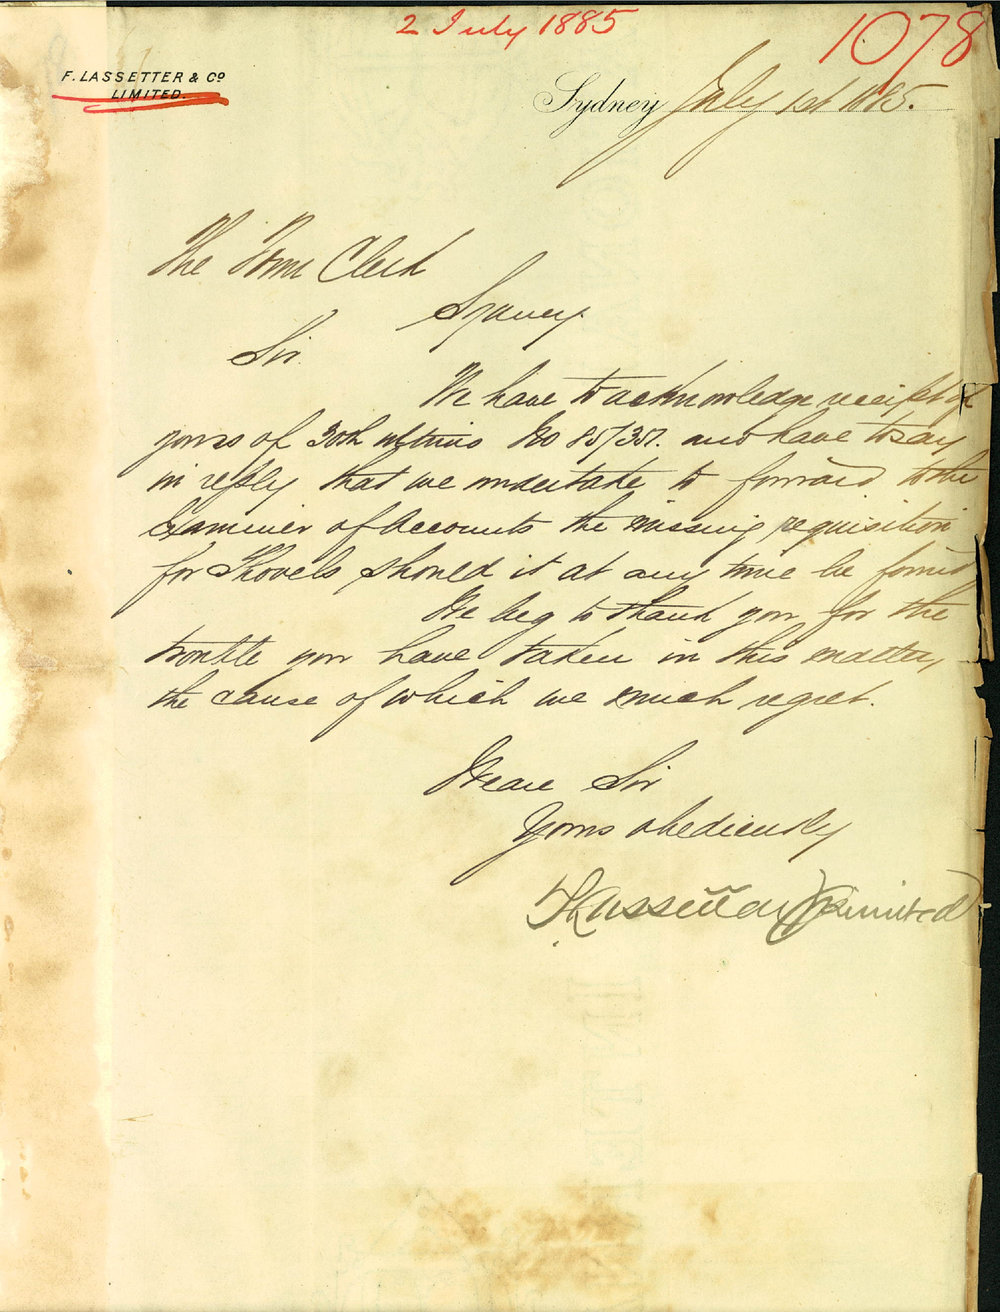 2 July 1885
1078
F. LASSETTER & Co
LIMITED.
Sydney July 1st 1885.
The Town Clerk
Sydney.
Sir
We have to acknowledge receipt of
yours of 30th ultimo No 85/357. and have to say
in reply that we undertake to forward to the
Examiner of Accounts the missing requisition
for Shovels should it at any time be found
We beg to thank you for the
trouble you have taken in this matter,
the cause of which we much regret.
We are Sir
Yours obediently
F Lassetter & Co Limited